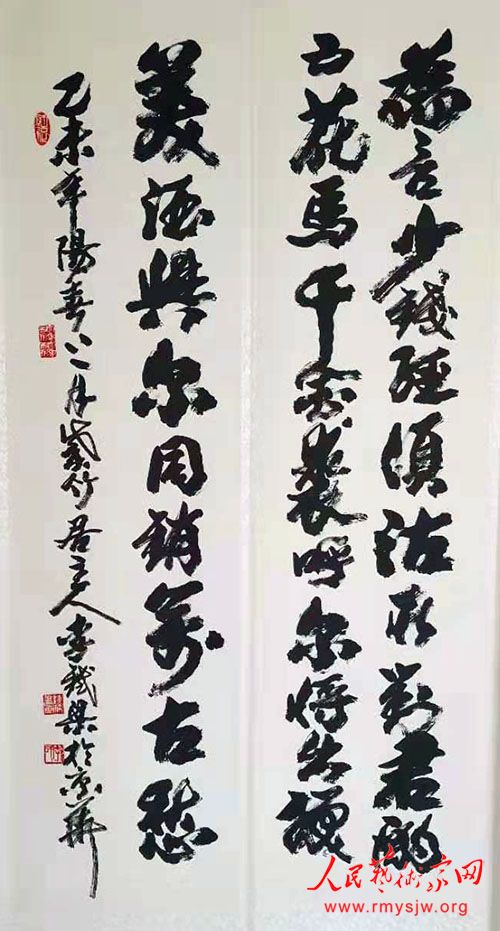 為言少錢徑須沽取對君酌
五花馬千金裘呼尔將出換
美酒與尔同銷萬古愁
乙未年陽春三月紫竹居主人李於京華
人民藝術家网
www.rmysjw.org